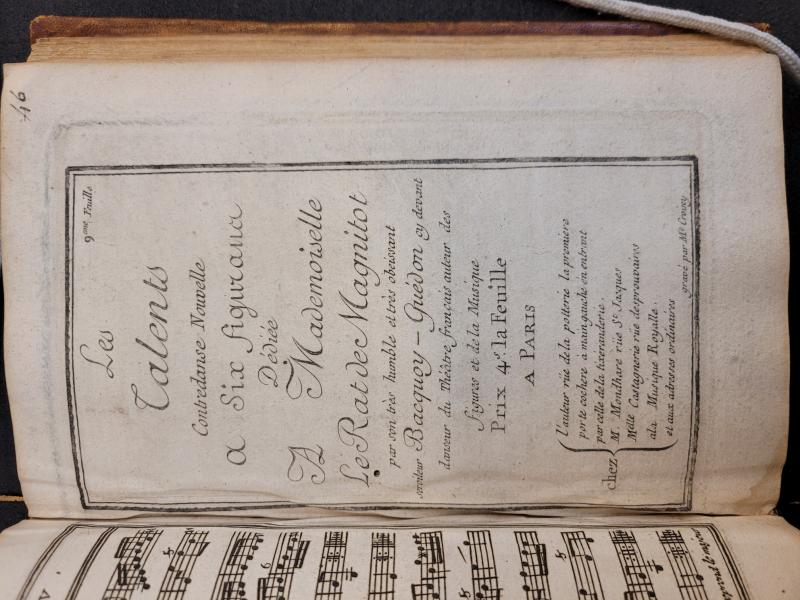 46
9me. Feuille
Les
Talents
Contredanse Nouvelle
a Six figurans
Dédiée
A Mademoiselle
Le Rat de Magnitot
par son très humble et très obeissant
serviteur Bacquoy - Guédon cy devant
danseur du Théâtre français auteur des
figures et de la Musique
Prix 4 s. la Feuille
A PARIS
chez
l'auteur rüe de la potterie la premiere
porte cochere à main gauche en entrant
par celle de la tixeranderie.
M. Mondhare rüe St. Jacques
Melle Castagnerie rüe des prouvaires
ala Musique Royalle.
et aux adresses ordinaires
gravé par Me. Croisey
reprend le